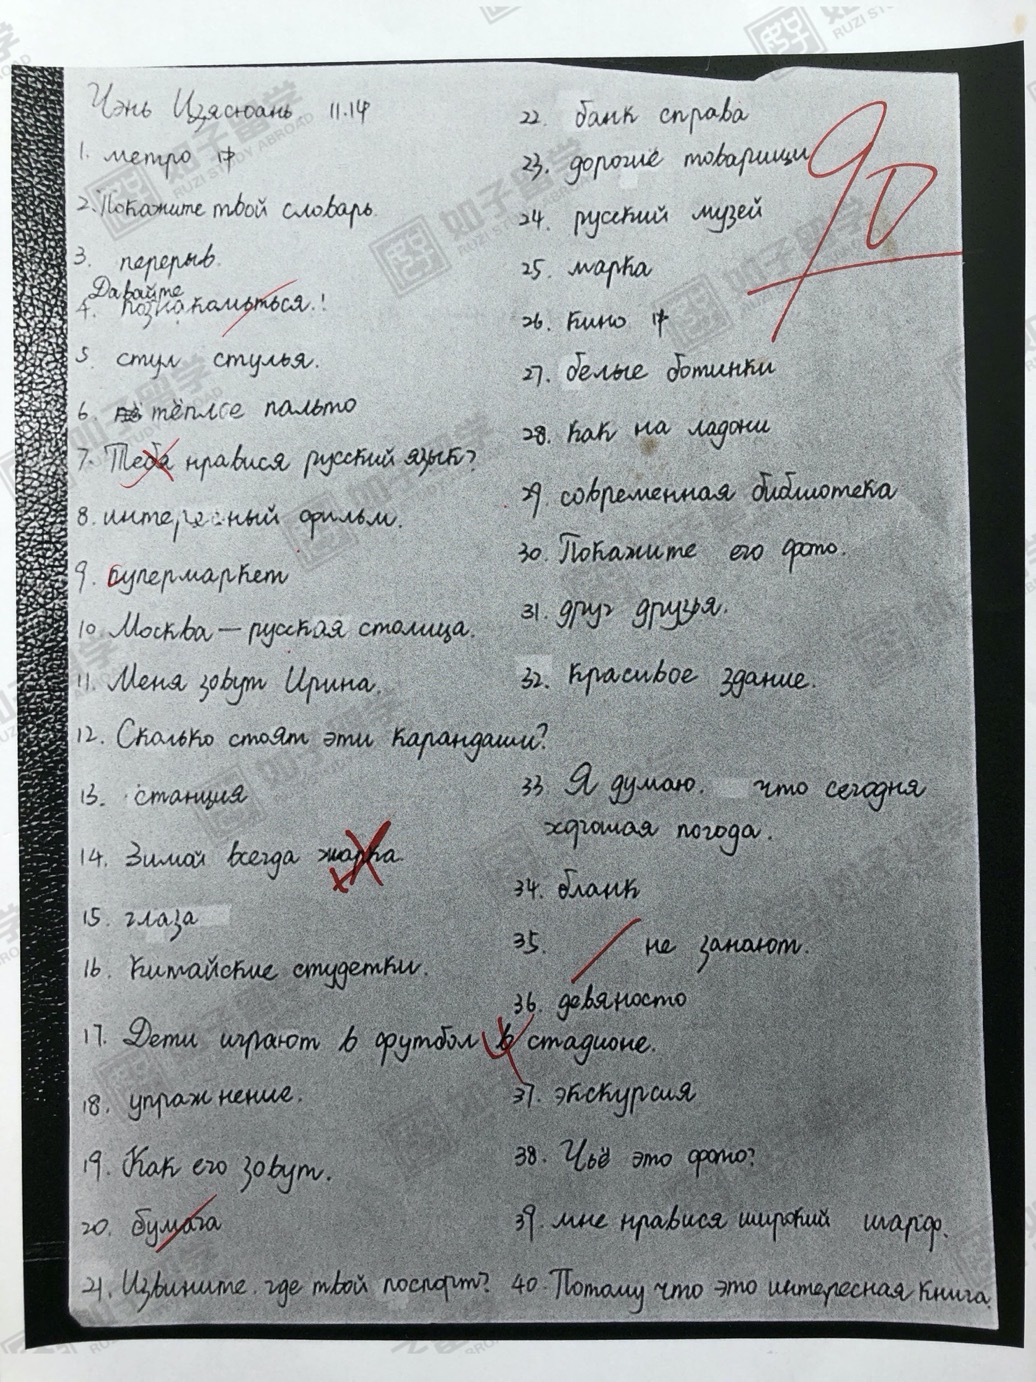 Чэнь Цзясюань 11.14
1. метро 中
2. Покажите твой словарь.
3. перерыв.
Давайте
4. познакомьться.!
5. стул стулья.
6. тёплсе пальто
7. Тебя нрависся русский язык?
8. интересный фильм.
9. Супермаркет
10. Москва — русская столица.
11. Меня зовут Ирина.
12. Сколько стоят эти карандаши?
13. станция
14. Зимой всегда жарка.
15. глаза
16. Китайские студетки.
17. Дети играют в футбол в стадионе.
18. упражнение.
19. Как его зовут.
20. бумага
21. Извините. где твой поспорт?
22. банк справа
23. дорогие товарищи
24. русский музей
25. марка
26. кино 中
27. белые ботинки
28. как на ладони
29. современная библиотека
30. Покажите его фото.
31. друг друзья.
32. красивое здание.
33. Я думаю. что сегодня
хорошая погода.
34. бланк
35. не занают.
36. девяносто
37. экскурсия
38. Чьё это фото?
39. мне нрависся широкий шарф.
40. Потому что это интересная книга.
90
如子留学
RUZI STUDY ABROAD